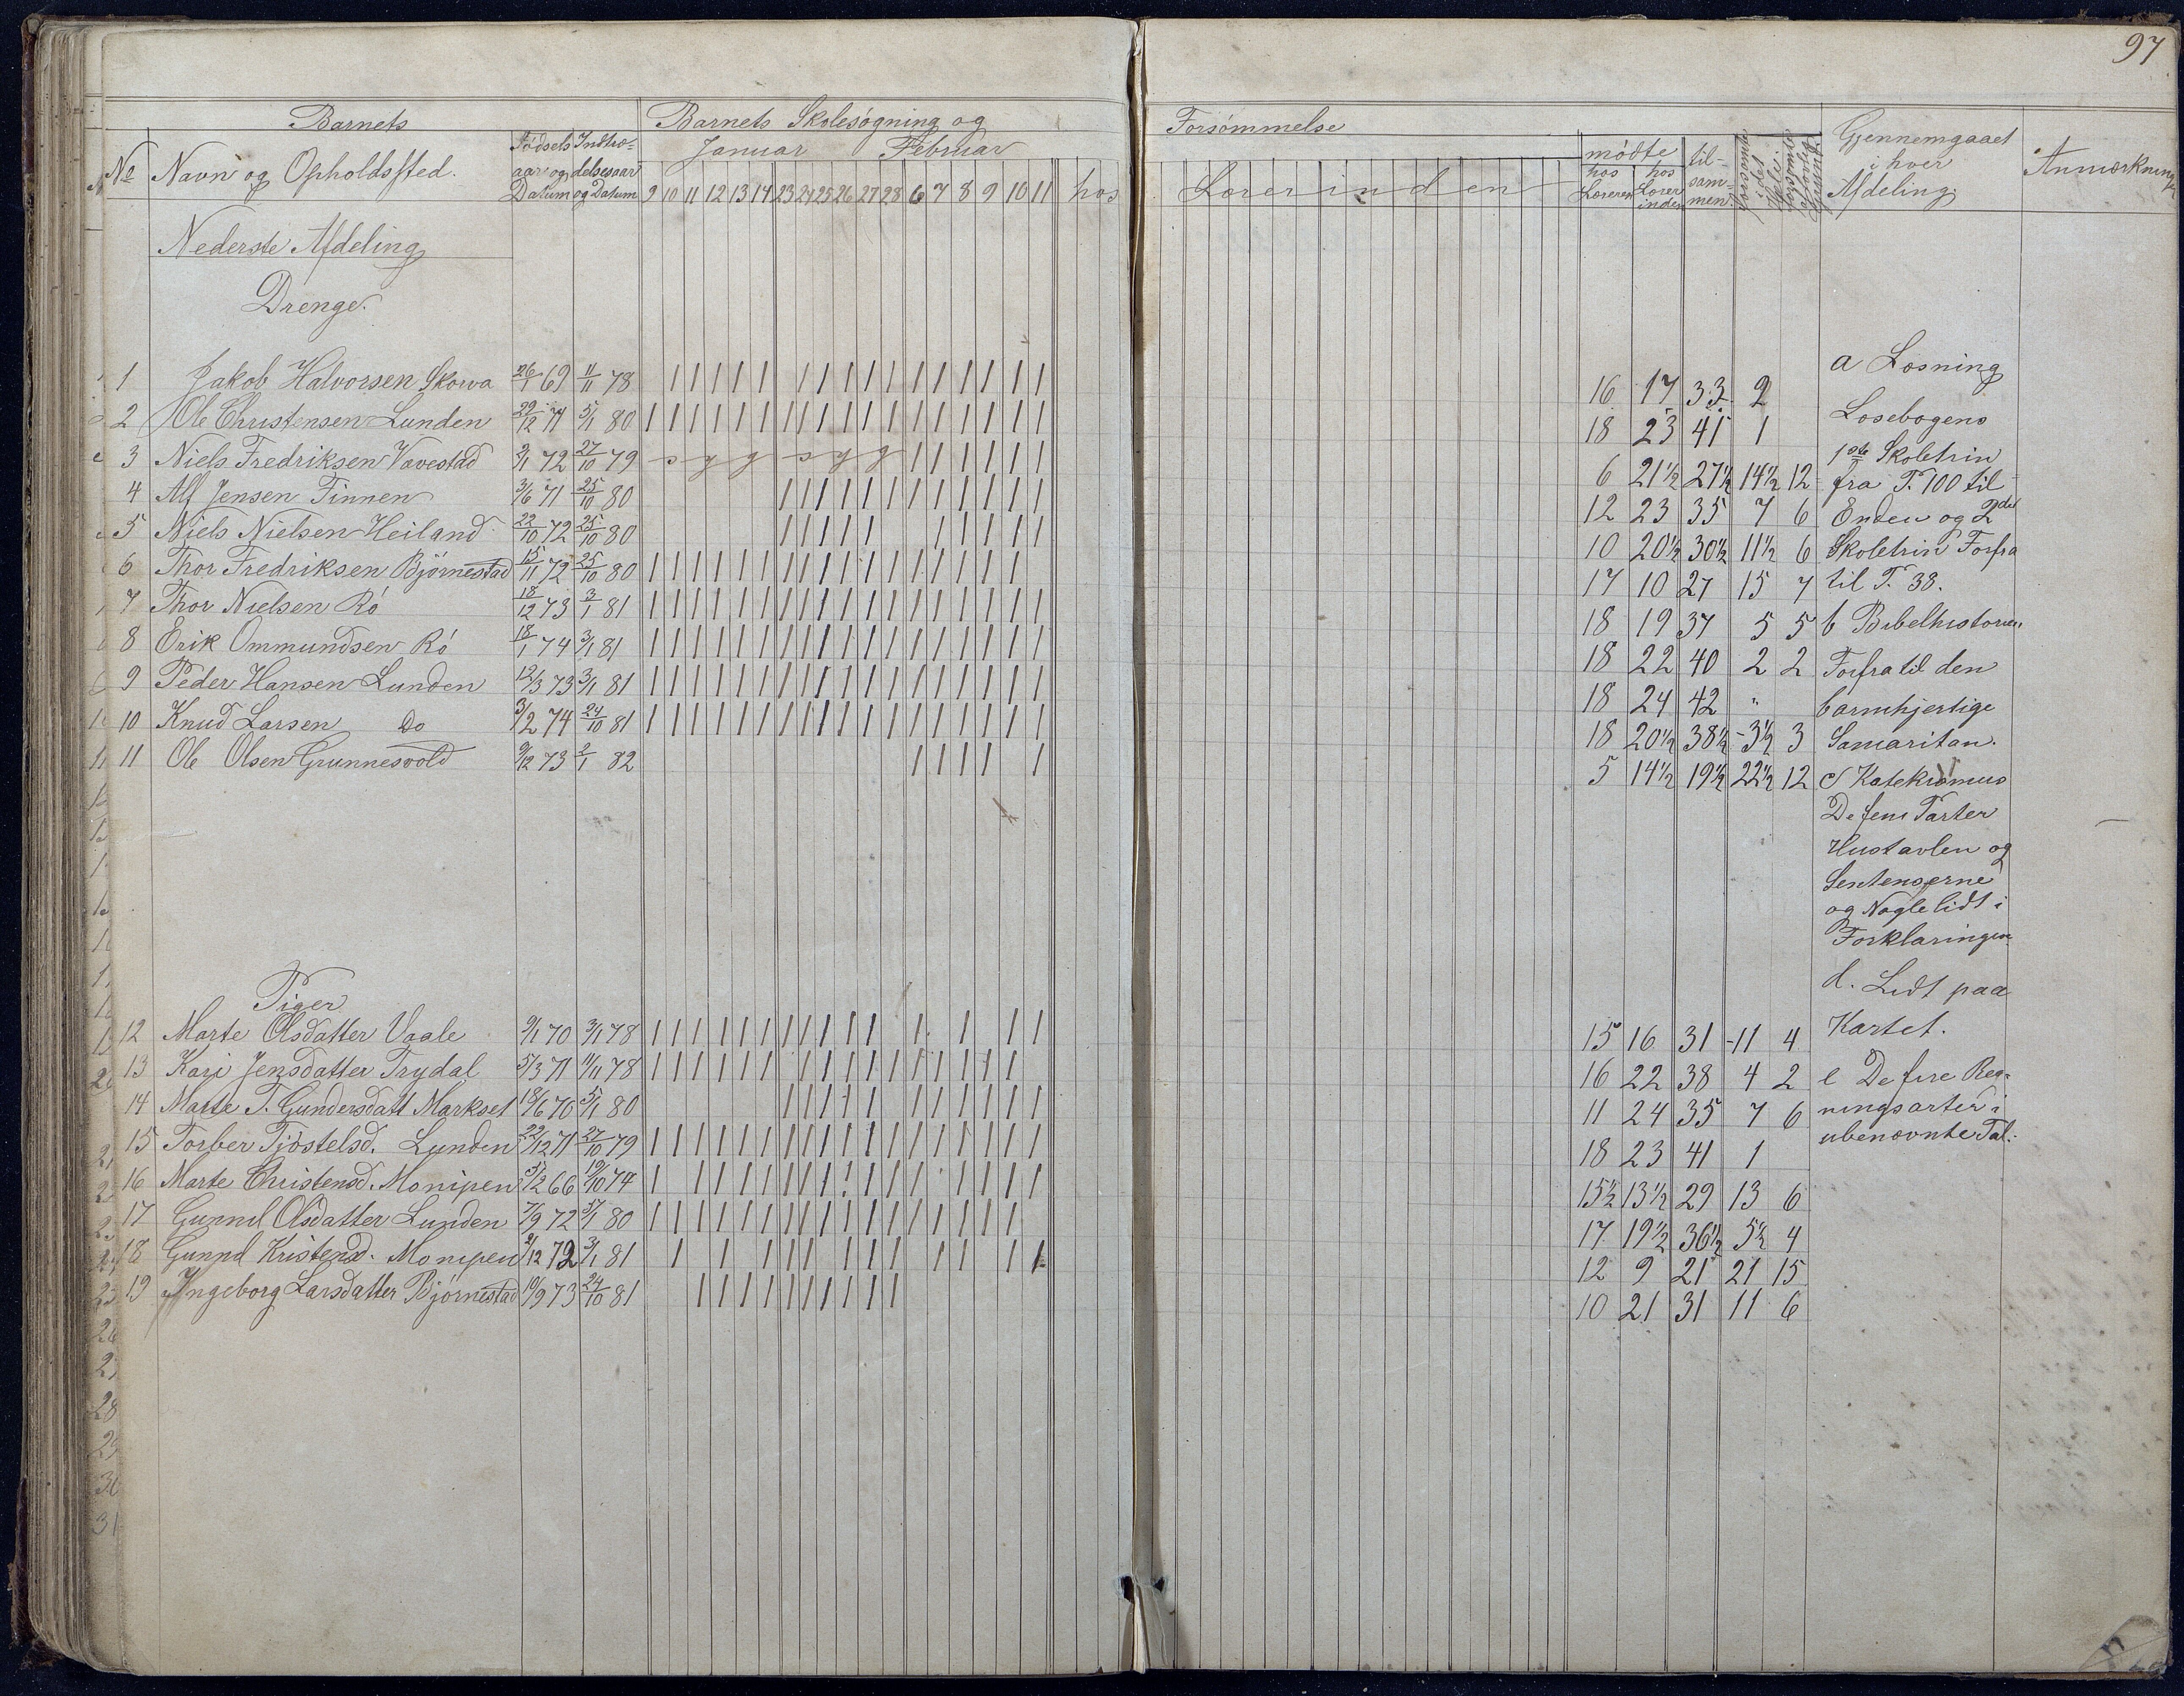 97
Barnets
Barnets Skolesøgning og
Forsømmelse
No Navn og Opholdssted.
Fødsels aar og Datum
Indtrædelsesaar og Datum
Januar Februar
9 10 11 12 13 14 23 24 25 26 27 28 6 7 8 9 10 11 hos Lærerinden
mødte hos Læreren
hos Lærerinden
tilsammen
forsømte i det Hele
Gjennemgaaet i hver Afdeling
Anmærkning
Nederste Afdeling
Drenge.
1 Jakob Halvorsen Skorva 26/1 69 11/11 78 | | | | | | | | | | | | | | | | | 16 17 33 2
2 Ole Christensen Lunden 29/12 71 5/1 80 | | | | | | | | | | | | | | | | | | 18 23 41 1
3 Niels Fredriksen Vavestad 3/1 72 27/10 79 s y g s y g | | | | | | 6 21½ 27½ 14½ 12
4 Alf Jensen Finnen 3/6 71 25/10 80 | | | | | | | | | | | | 12 23 35 7 6
5 Niels Nielsen Heiland 22/10 72 25/10 80 | | | | | | | | | | 10 20½ 30½ 11½ 6
6 Thor Fredriksen Bjørnestad 15/11 72 25/10 80 | | | | | | | | | | | | | | | | | 17 10 27 15 7
7 Thor Nielsen Rø 18/12 73 3/1 81 | | | | | | | | | | | | | | | | | | 18 19 37 5 5
8 Erik Ommundsen Rø 18/1 74 3/1 81 | | | | | | | | | | | | | | | | | | 18 22 40 2 2
9 Peder Hansen Lunden 12/3 73 3/1 81 | | | | | | | | | | | | | | | | | | 18 24 42 "
10 Knud Larsen Do 3/2 74 24/10 81 | | | | | | | | | | | | | | | | | | 18 20½ 38½ 3½ 3
11 Ole Olsen Grunnesvold 9/12 73 2/1 82 | | | | | 5 14½ 19½ 22½ 12
Piger
12 Marte Olsdatter Vaale 9/1 70 3/1 78 | | | | | | | | | | | | | | | 15 16 31 11 4
13 Kari Jensdatter Trydal 5/3 71 11/11 78 | | | | | | | | | | | | | | | | 16 22 38 4 2
14 Marte T. Gundersdatt Markset 18/6 70 5/1 80 | | | | | | | | | | | 11 24 35 7 6
15 Torber Tjøstelsd. Lunden 22/12 71 27/10 79 | | | | | | | | | | | | | | | | | | 18 23 41 1
16 Marte Christensd. Monipen 5/2 66 19/10 74 | | | | | | | | | | | | | | | | 15½ 13½ 29 13 6
17 Gunnil Olsdatter Lunden 7/9 72 5/1 80 | | | | | | | | | | | | | | | | | 17 19½ 36½ 5½ 4
18 Gunnil Kristensd. Monipen 2/12 72 3/1 81 | | | | | | | | | | | | 12 9 21 21 15
19 Ingeborg Larsdatter Bjørnestad 10/9 73 24/10 81 | | | | | | | | | | 10 21 31 11 6
a Læsning
Læsebogens
1ste Skoletrin
fra P. 100 til
Enden og 2det
Skoletrin Forfra
til P. 38.
b Bibelhistorien
Forfra til den
barmhjertige
Samaritan.
c Katekismus
De fem Parter
Hustavlen og
Sentenserne
og Nogle lidt i
Forklaringen
d. Lidt paa
Kartet.
e De fire Reg-
ningsarter i
ubenævnte Tal.